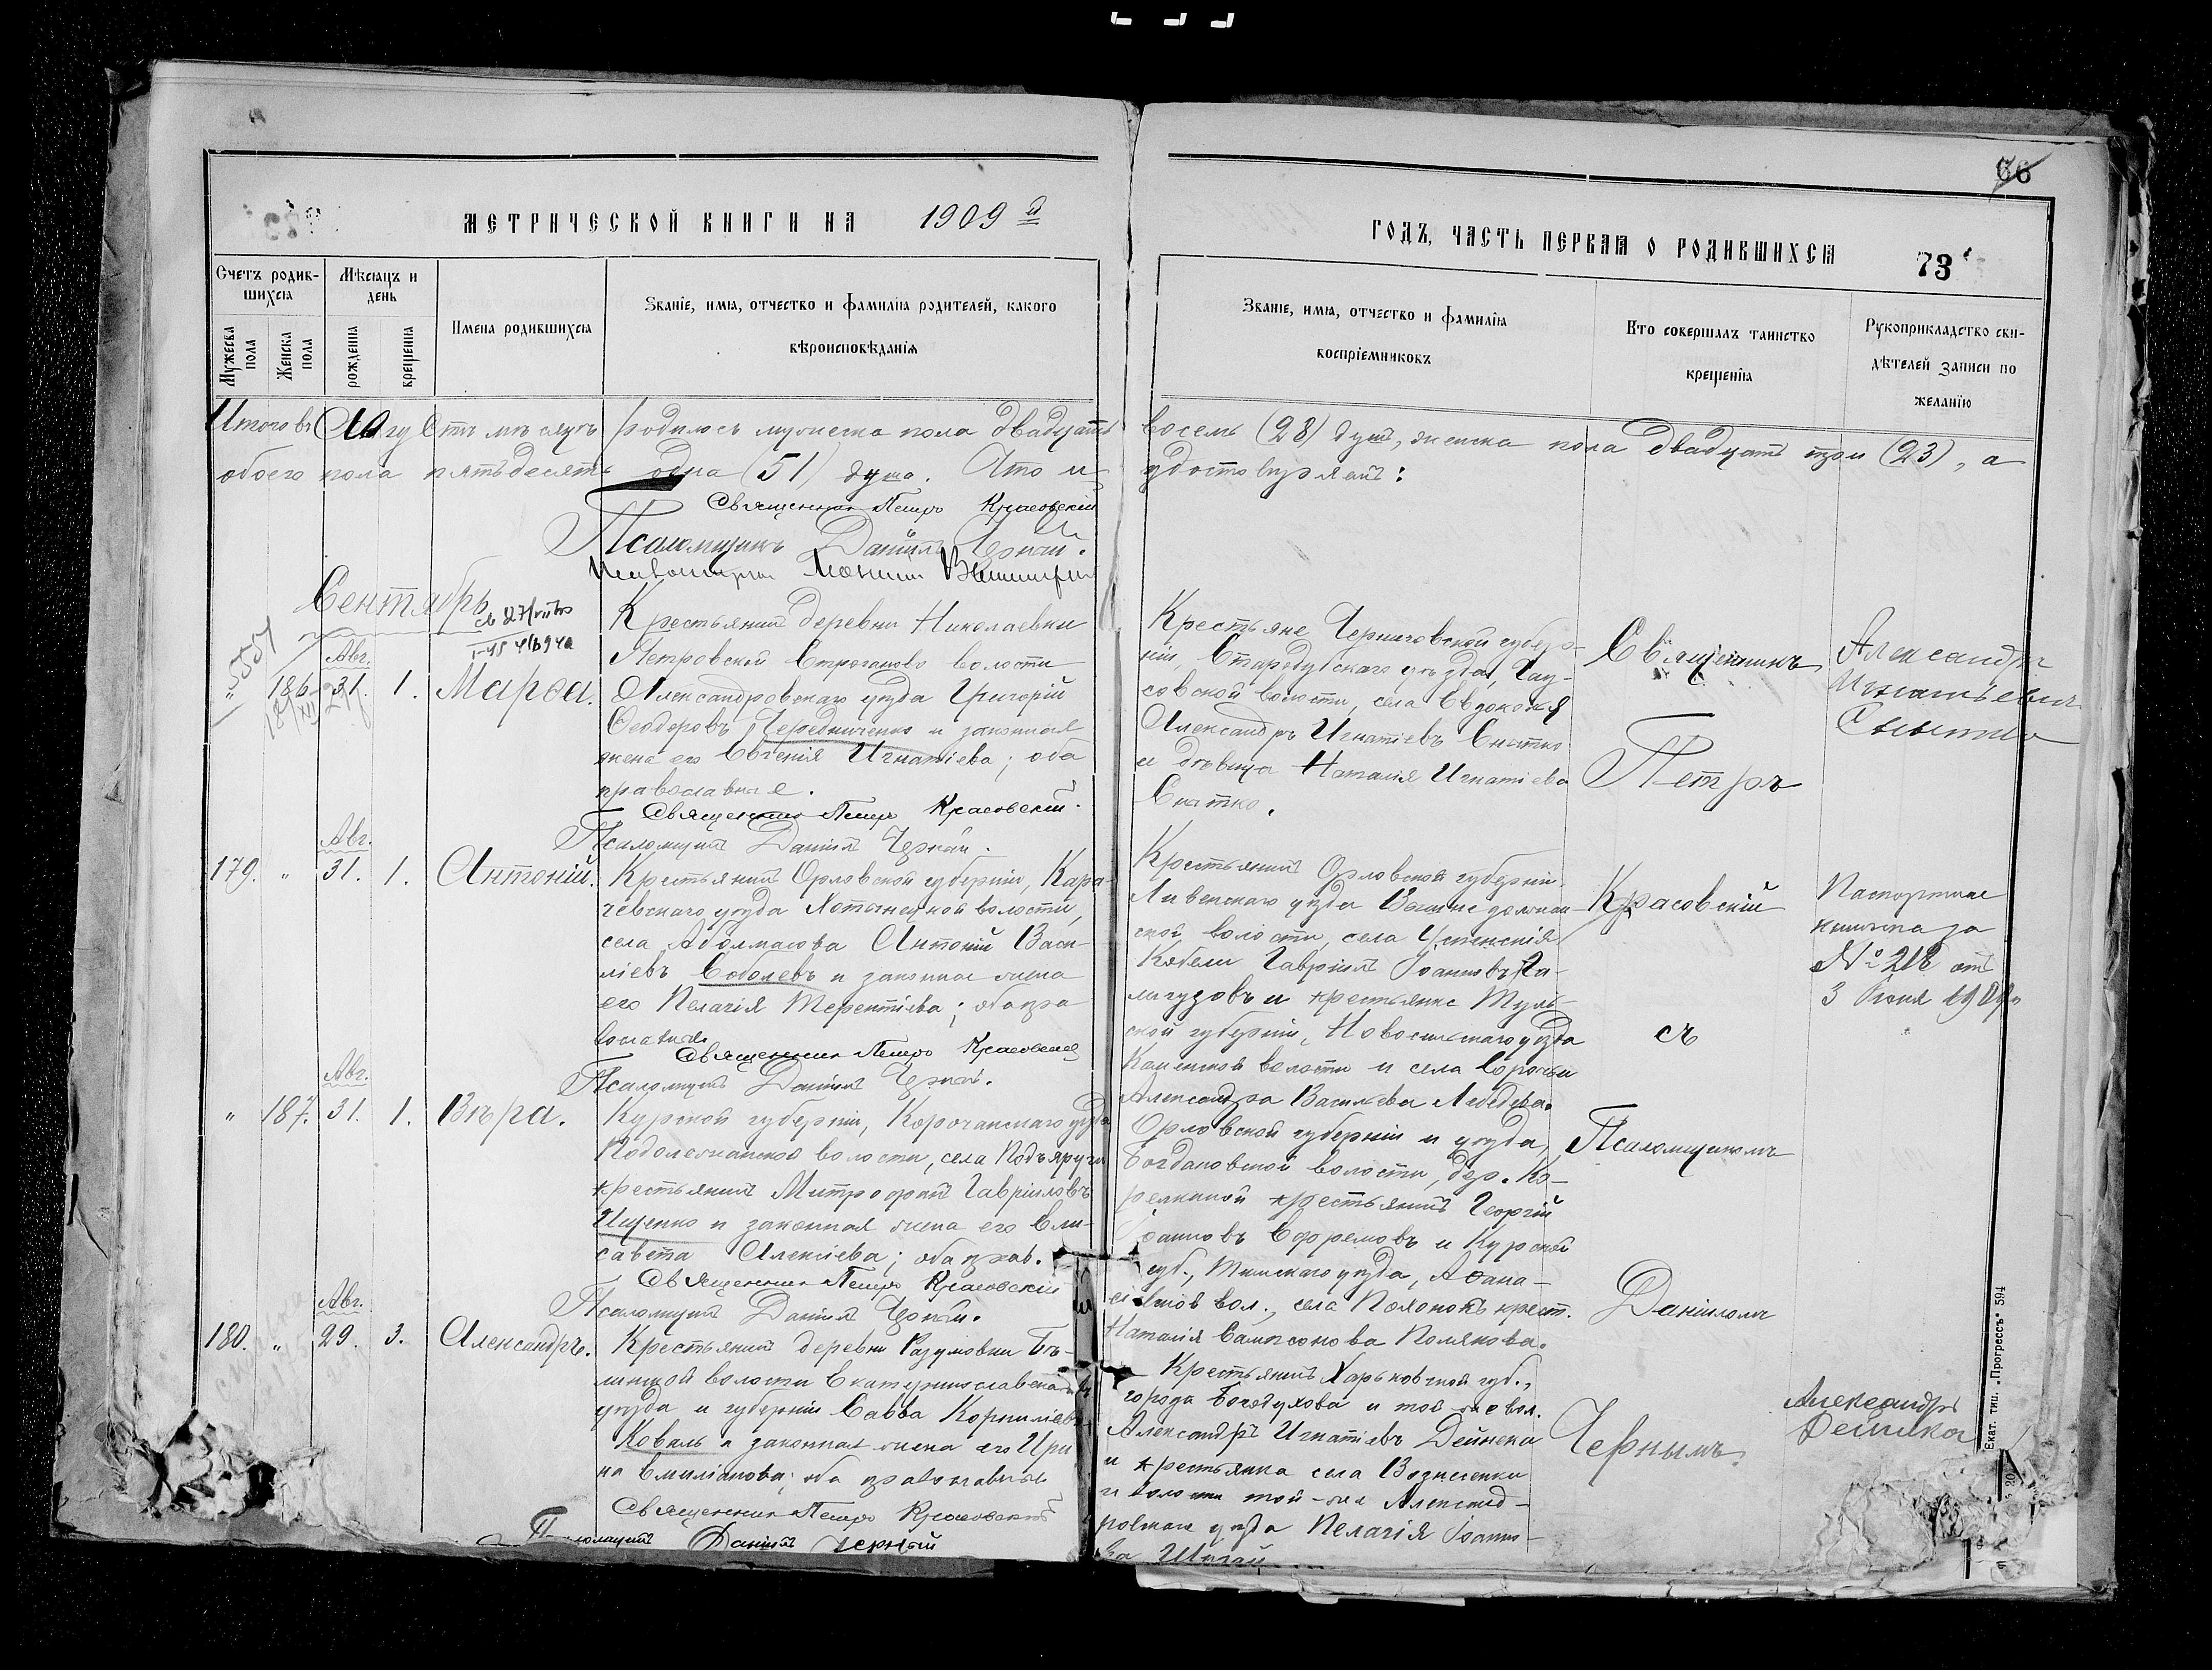 66
МЕТРИЧЕСКОЙ КНИГИ НА 1909 й
ГОДЪ, ЧАСТЬ ПЕРВАЯ О РОДИВШИХСЯ
73
Счетъ родив-
шихся
Мѣсяцъ и
день
Мужеска пола
Женска пола
рожденія
крещенія
Имена родившихся
Званіе, имя, отчество и фамилія родителей, какого
вѣроисповѣданія
Званіе, имя, отчество и фамилія
воспріемниковъ
Кто совершалъ таинство
крещенія
Рукоприкладство сви-
дѣтелей записи по
желанію
Итого въ Августѣ мѣсяцѣ родилось мужеска пола двадцать
обоего пола пятьдесятъ одна (51) душа. Что и
Священникъ Петръ Красовскій
Псаломщикъ Даніилъ Черный.
восемь (28) душъ, женска пола двадцать три (23), а
удостовѣряемъ:
Сентябрь
Авг.
186 31. 1. Марѳа.
Крестьянинъ деревни Николаевки
Петровской Строганово волости
Александровскаго уѣзда Григорій
Ѳеодоровъ Чередниченко и законная
жена его Евгенія Игнатіева; оба
православные.
Священникъ Петръ Красовскій.
Псаломщикъ Даніилъ Черный.
Крестьяне Черниговской губер-
ніи, Стародубскаго уѣзда,
совской волости, села
Александръ Игнатіевъ Снытко
и дѣвица Наталія Игнатіева
Снытко.
Священникъ
Петръ
Красовскій
съ
Псаломщикомъ
Даніиломъ
Чернымъ.
Александръ
Игнатьевич
Снытко
Авг.
179. " 31. 1. Антоній.
Крестьянинъ Орловской губерніи, Кара-
чевскаго уѣзда Хотынецкой волости,
села Аболмасова Антоній Васи-
ліевъ Соболевъ и законная жена
его Пелагія Терентіева; оба пра
вославные
Священникъ Петръ Красовскій
Псаломщикъ Даніилъ Черный.
Крестьянинъ Орловской губерніи
Ливенскаго уѣзда
ской волости, села Успенскія
Гавріилъ Іоанновъ
и крестьянка Туль-
ской губерніи, Новосильскаго уѣзда
волости и села
Александра Васильева Лебедева.
Паспортная
книжка за
№ 218 отъ
3 Іюня
Авг.
" 187. 31. 1. Вѣра.
Курской губерніи, Корочанскаго уѣзда
волости, села Подъяруги
крестьянинъ Митрофанъ Гавріиловъ
Ищенко и законная жена его Ели-
савета Алексіева; оба прав.
Священникъ Петръ Красовскій
Псаломщикъ Даніилъ Черный.
Орловской губерніи и уѣзда,
Богдановской волости, дер. Ко-
крестьянинъ Георгій
Іоанновъ Ефремовъ и Курской
губ., Тимскаго уѣзда, Аѳана-
вол., села крест.
Наталія Сампсонова Полякова.
Авг.
180. " 29. 3. Александръ.
Крестьянинъ деревни Разумовки Бѣ-
ленькой волости Екатеринославскаго
уѣзда и губерніи Савва Корниліевъ
Коваль и законная жена его Ири
на Емиліанова; оба православные
Священникъ Петръ Красовскій
Псаломщикъ Даніилъ Черный
Крестьянинъ Харьковской губ.,
города Богодухова и той же вол.
Александръ Игнатіевъ Дейнека
и крестьянка села Вознесенки
и волости той-же Александ-
ровскаго уѣзда Пелагія Іоанно-
ва
Александръ
Дейнека
Екат. тип. „Прогрессъ" 594